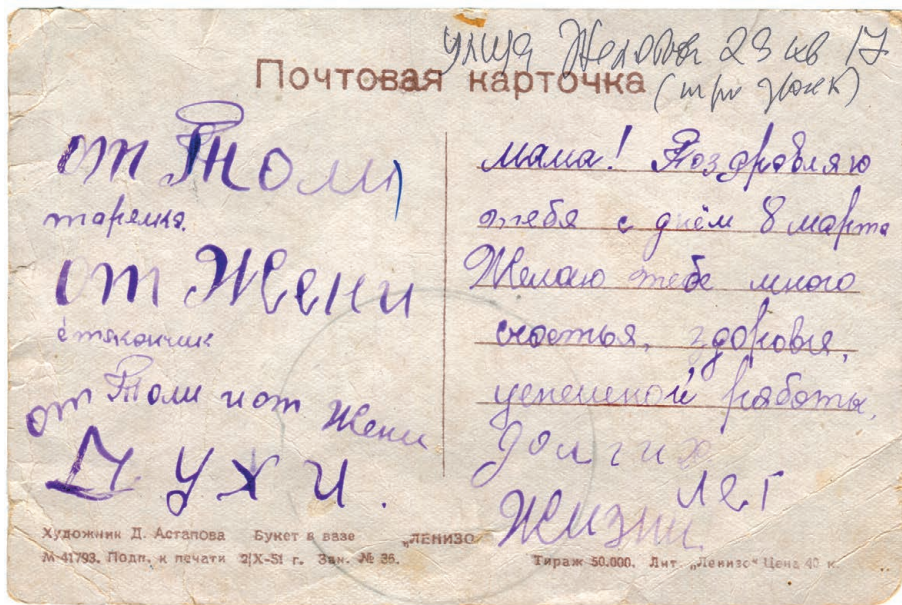 улица 23 кв 17
Почтовая карточка
(три
от Толи
тарелка.
от Жени
стакончик
от Толи и от Жени
Духи.
мама! Поздравляю
тебя с днём 8 марта
Желаю тебе много
счастья, здоровья,
успешной работы,
долгих
лет
Жизни
Художник Д. Астапова Букет в вазе „ЛЕНИЗО“
М-41793. Подп. к печати 2/X-51 г. Зак. № 36.
Тираж 50.000. Лит. „Ленизо“ Цена 40 к.